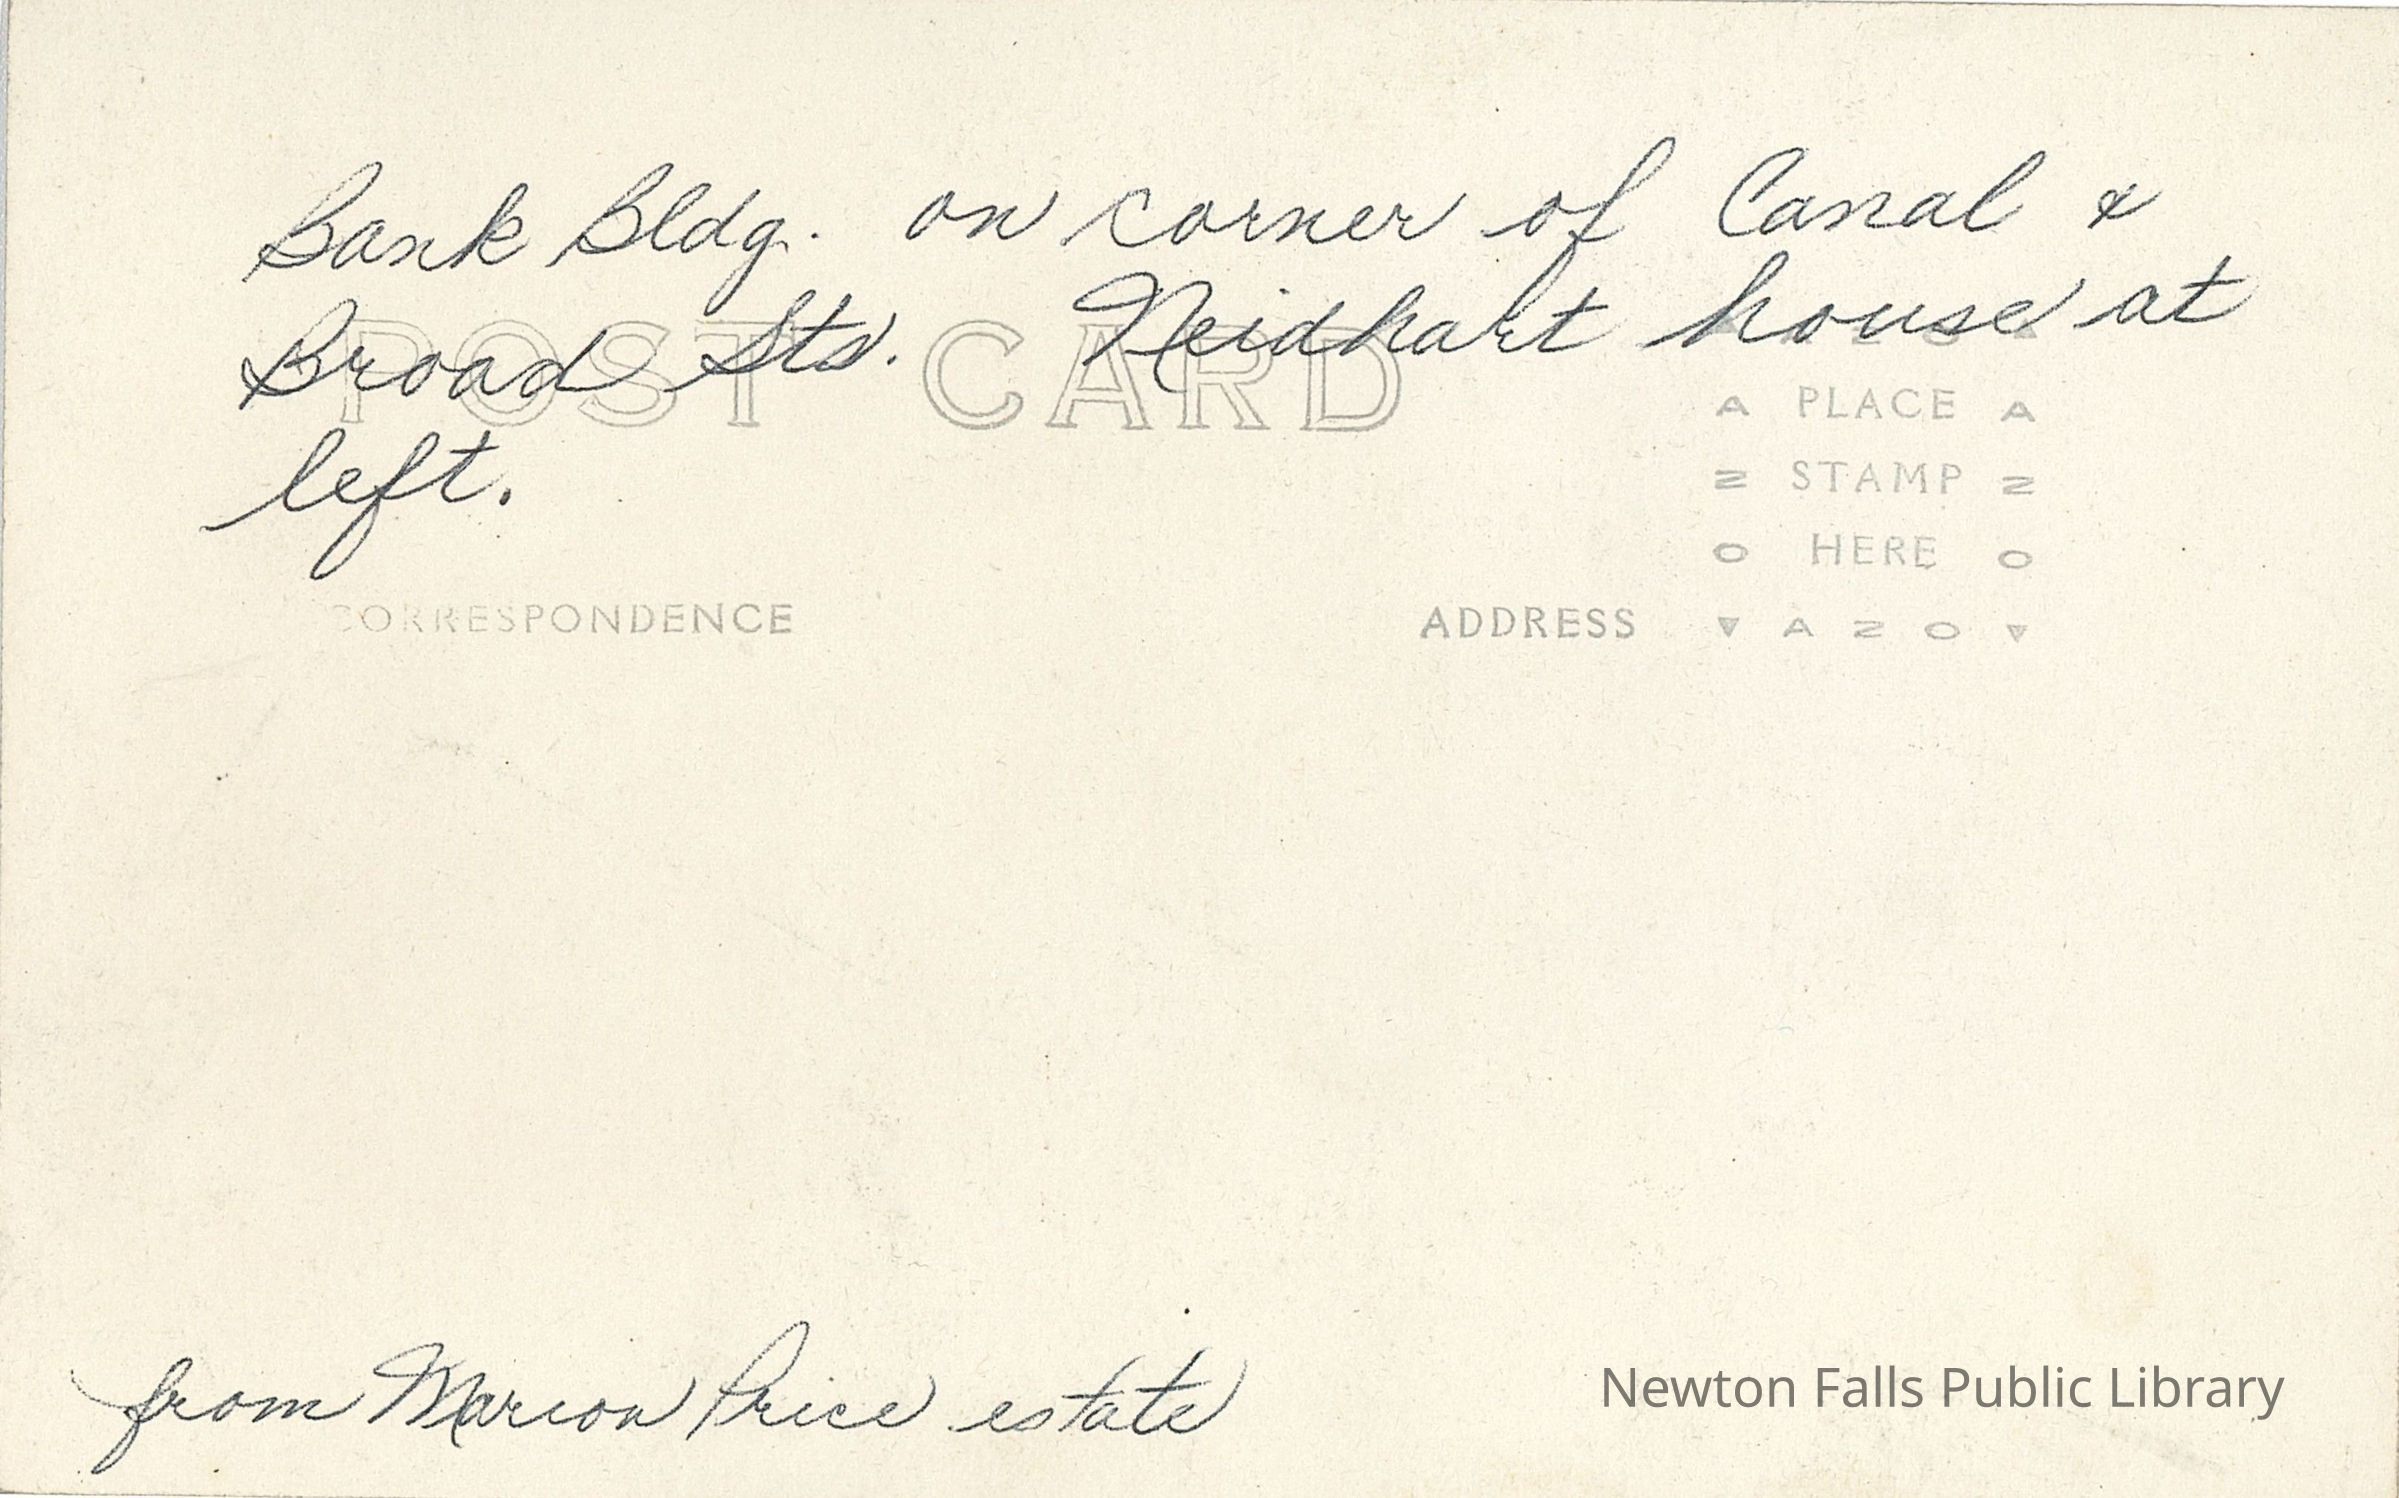 Bank Bldg. on corner of Canal &
Broad Sts. Neidhart house at
left.
POST CARD
CORRESPONDENCE
ADDRESS
AZO
PLACE
STAMP
HERE
AZO
AZO
AZO
from Marion Price estate
Newton Falls Public Library